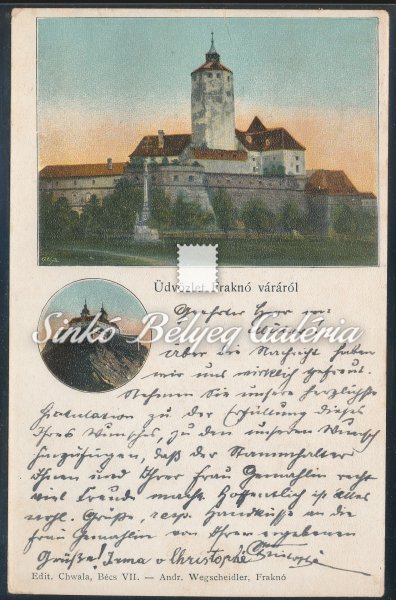 Üdvözlet Fraknó váráról
Sinkó Bélyeg Galéria
Geehrter Herr
Aber die Nachricht haben
wir uns wirklich gefreut.
Nehmen Sie unsere herzlichste
Gratulation zu der Erfüllung dieses
Ihres Wunsches, zu den unseren Wunsch
hinzufügen, daß der Stammhalter
Ihnen und Ihrer Frau Gemahlin recht
viel Freude macht. Hoffentlich ist alles
wohl. Grüße, resp. Handküsse an die
frau Gemahlin von Ihren ergebenen
Grüße! Irma v Christophé
Edit. Chwala, Bécs VII. — Andr. Wegscheidler, Fraknó